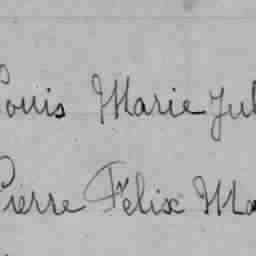 Louis Marie Jul
Pierre Félix Ma